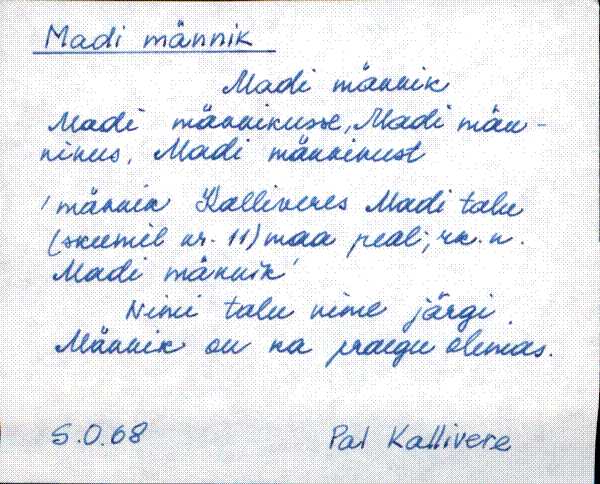 Madi männik
Madi männik
Madi männikusse, Madi män-
nikus, Madi männikust
'männik Kalliveres Madi talu
(skeemil nr. 11) maa peal; rk. n.
Madi männik'
Nimi talu nime järgi.
Männik on ka praegu olemas.
S.O.68 Pal Kallivere